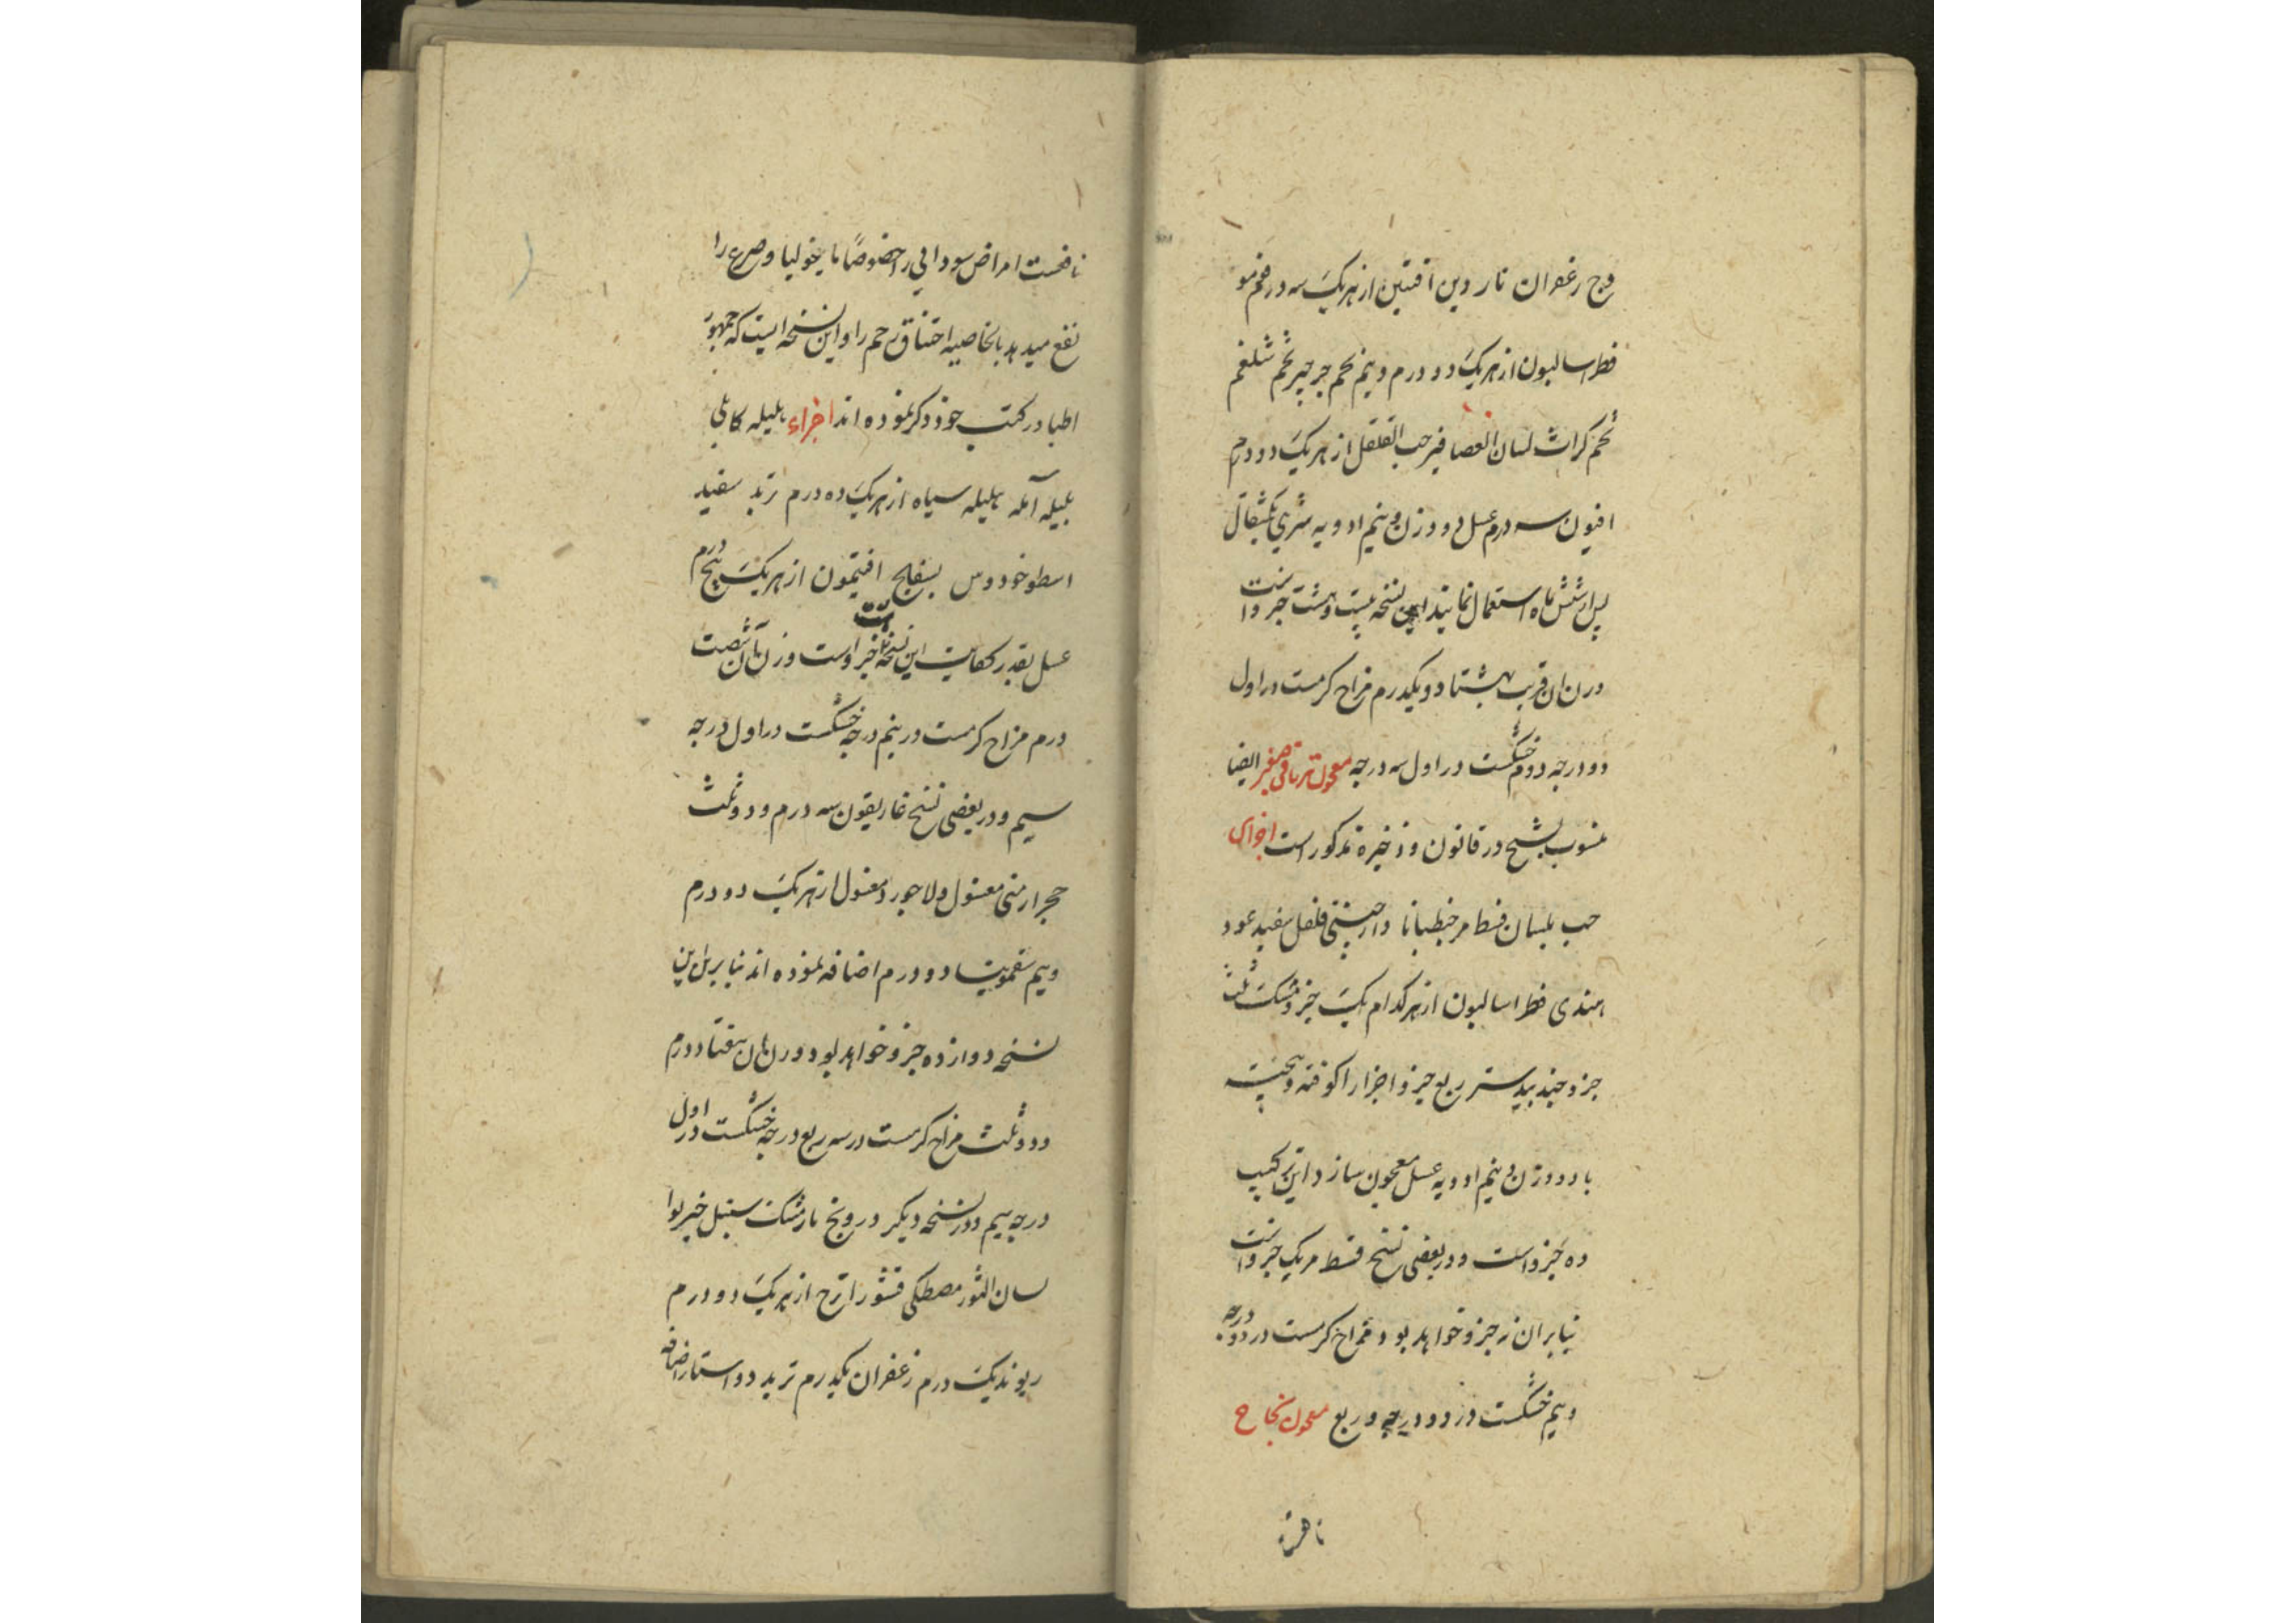 وج زعفران ناردین افتین از هریک سه درم فو مو
فطراسالیون از هریک دو درم و نیم تخم جرجیر تخم شلغم
تخم کراث لسان العصافیر حب القلقل از هریک دو درم
افیون سه درم عسل دو وزن و نیم ادویه شربتی یکمثقال
پس از شش ماه استعمال نمایند این نسخه بیست و هشت جزو است
وزن ان قریب هشتاد و یکدرم مزاج گرمست در اول
دو درجه دوم خشکست در اول سه درجه معجون تریاقی صغیر ایضا
منسوب بشیخ در قانون و ذخیره مذکور است اجزای
حب بلسان قسط مر جنطیانا دارچینی فلفل سفید عود
هندی فطراسالیون از هر کدام یک جزو مشک ثلث
جزو جندبیدستر ربع جزو اجزا را کوفته و بیخته
با دو وزن و نیم ادویه عسل معجون سازد این ترکیب
ده جزو است و در بعضی نسخ قسط مر یک جزو است
بنابران نه جزو خواهد بود مزاج گرمست در دو درجه
و نیم خشکست در دو درجه و ربع معجون نجاح
نافعست
نافعست امراض سودایی را خصوصاً مالیخولیا و صرع را
نفع میدهد بالخاصیه اختناق رحم را و این نسخه ایست که جمهور
اطبا در کتب خود ذکر نموده اند اجزاء هلیله کابلی
بلیله آمله هلیله سیاه از هریک ده درم تربد سفید
اسطوخودوس بسفایج افتیمون از هریک پنج درم
عسل بقدر کفایت این نسخه هشت جزو است وزن آن شصت
درم مزاج گرمست در نیم درجه خشکست در اول درجه
سیم و در بعضی نسخ غاریقون سه درم و دو ثلث
حجر ارمنی مغسول و لاجورد مغسول از هریک دو درم
و نیم سقمونیا دو درم اضافه نموده اند بنابراین
نسخه دوازده جزو خواهد بود وزن آن هفتاد درم
و دو ثلث مزاج گرمست در سه ربع درجه خشکست در اول
درجه سیم و در نسخه دیگر درونج نارمشک سنبل خیربوا
لسان الثور مصطکی قشور اترج از هریک دو درم
ریوند یک درم زعفران یکدرم تربد دو استار اضافه